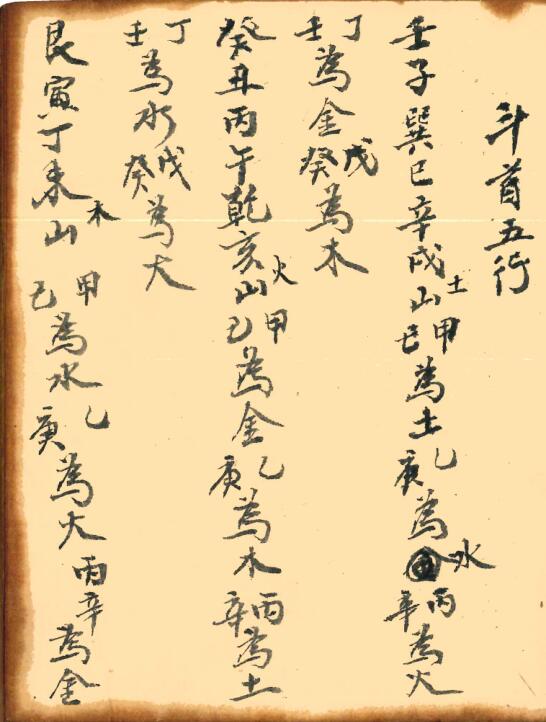 斗首五行
壬子巽巳辛戌山土甲己為土乙庚為水丙辛為火
丁壬為金戊癸為木
癸丑丙午乾亥山火甲己為金乙庚為木丙辛為土
丁壬為水戊癸為火
艮寅丁未山木甲己為水乙庚為火丙辛為金